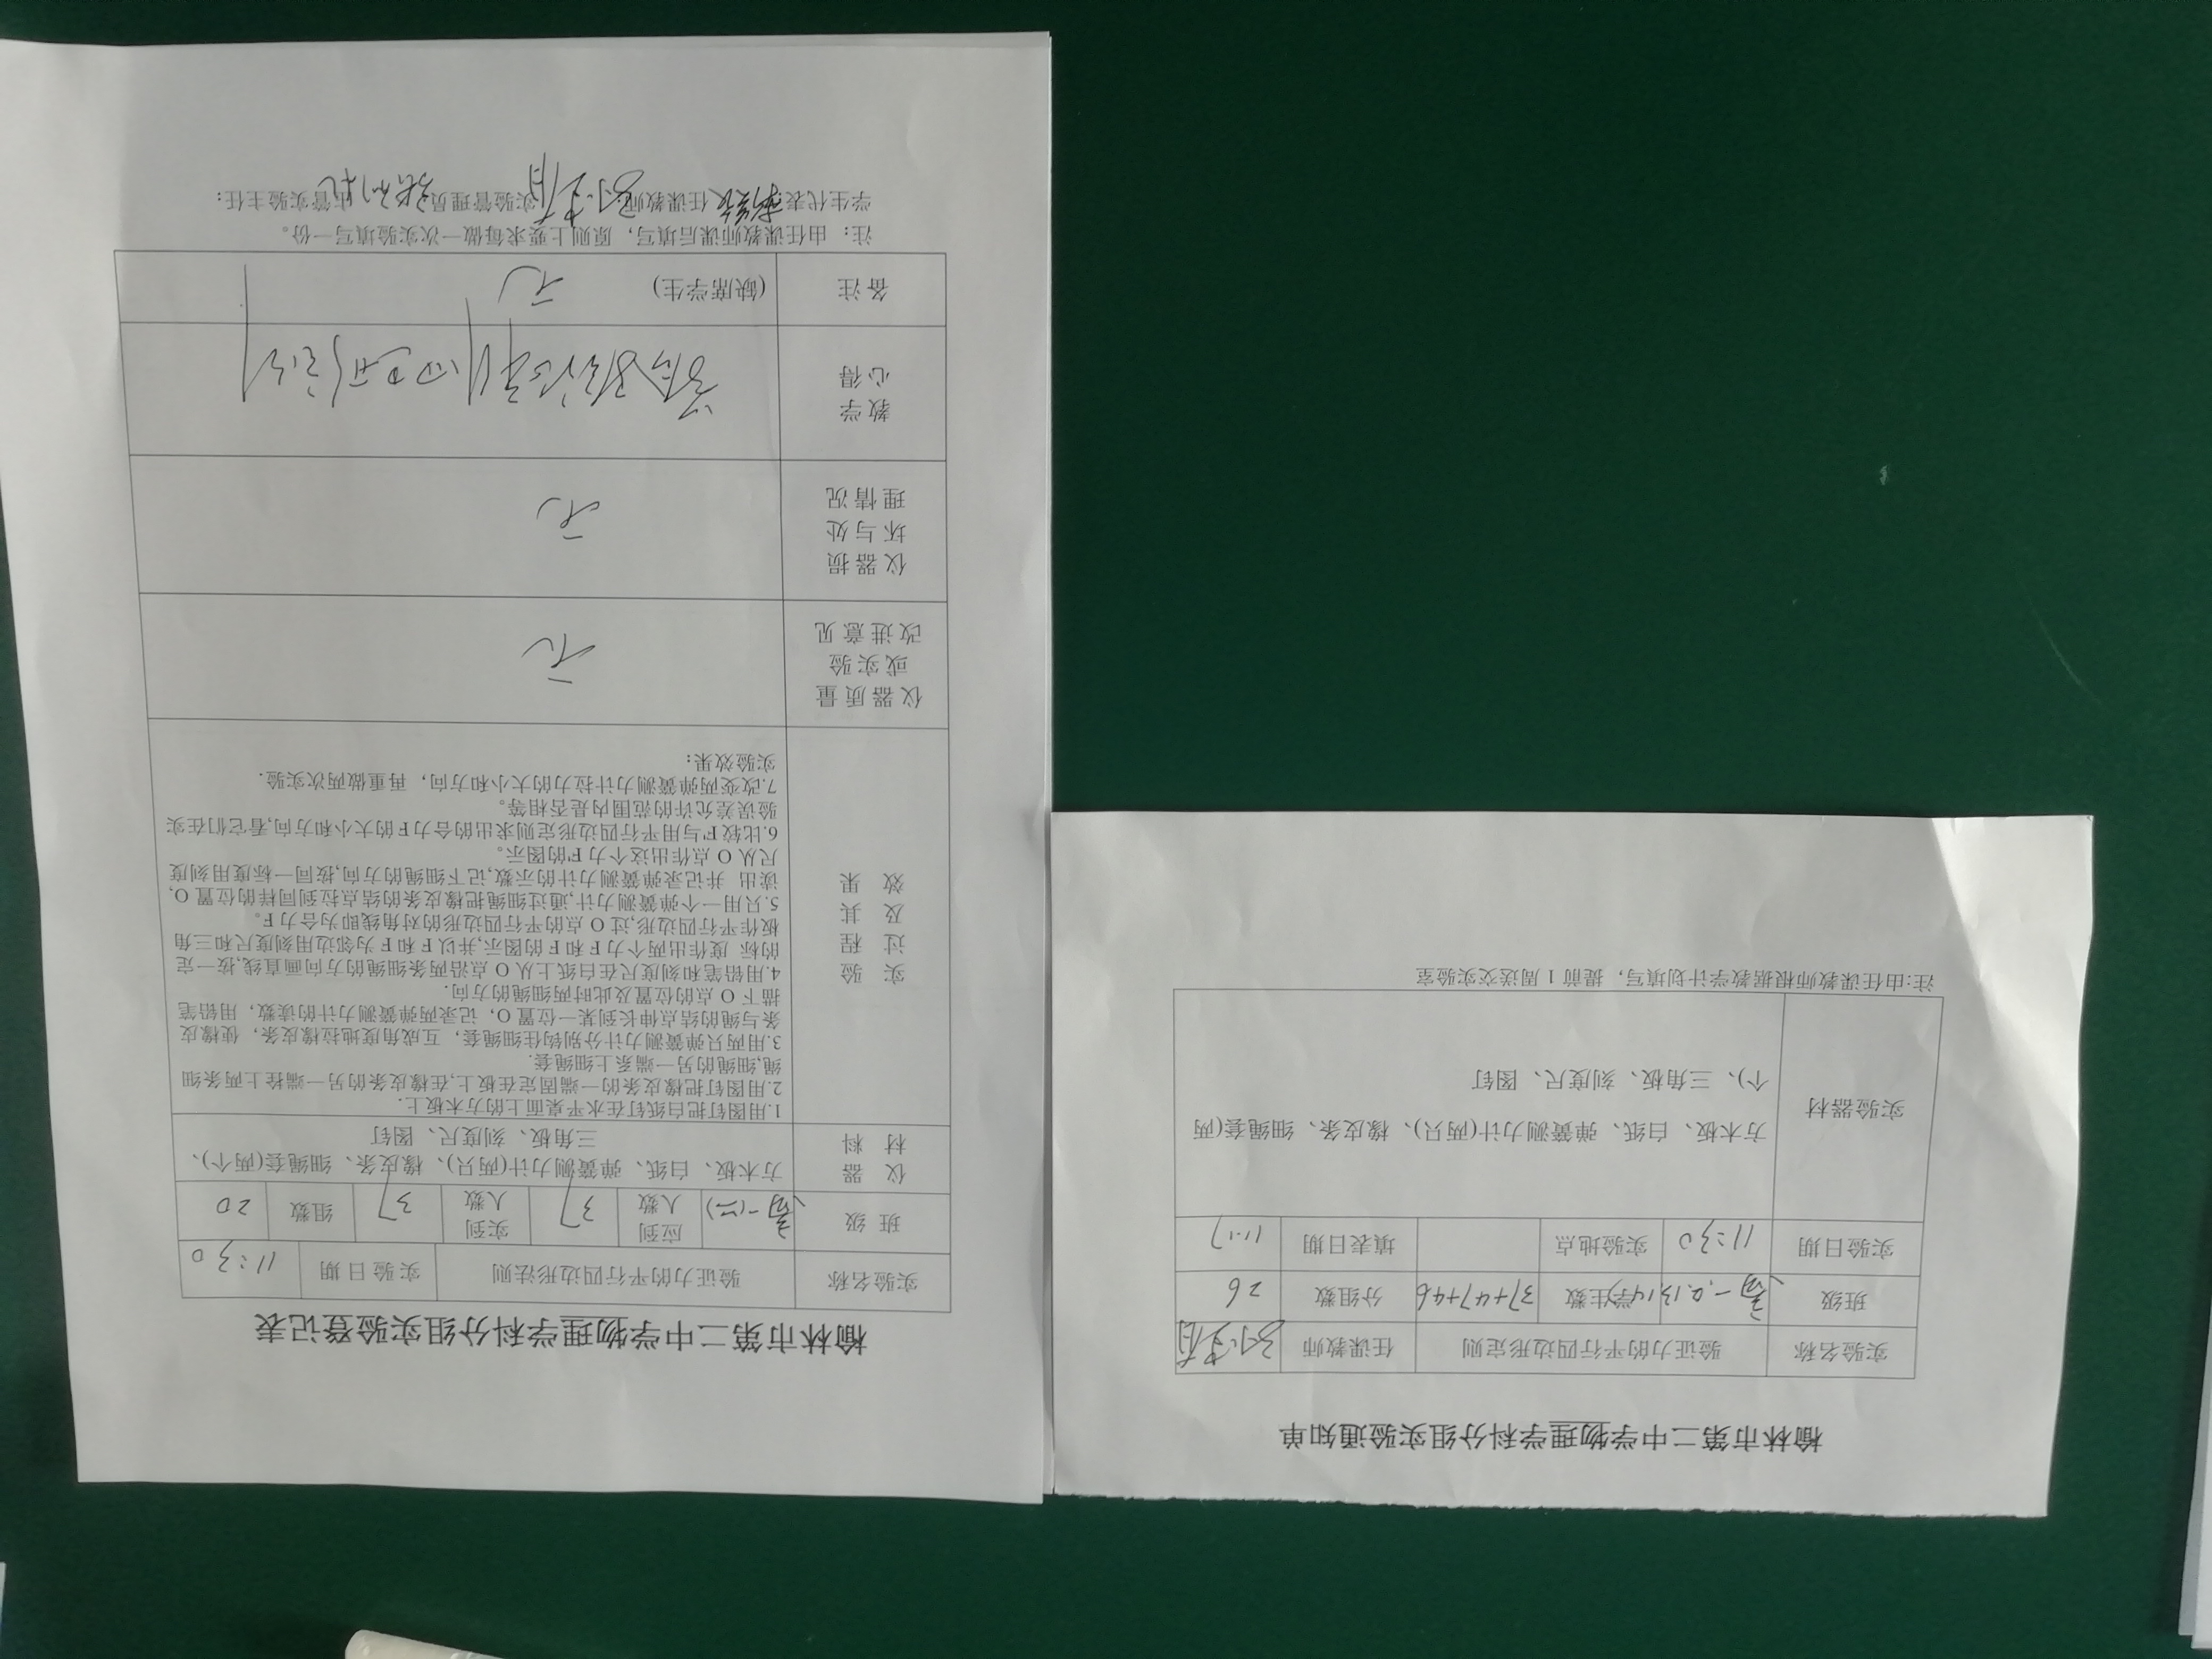 榆林市第二中学物理学科分组实验通知单
实验名称 验证力的平行四边形定则 任课教师
班级 高一 学生数 37+47+46 分组数 26
实验日期 11:30 实验地点 填表日期 11.17
实验器材
方木板、白纸、弹簧测力计(两只)、橡皮条、细绳套(两
个)、三角板、刻度尺、图钉
注:由任课教师根据教学计划填写，提前 1 周送交实验室
榆林市第二中学物理学科分组实验登记表
实验名称 验证力的平行四边形法则 实验日期 11:30
班级 高一(二) 应到人数 37 实到人数 37 组数 20
仪器材料
方木板、白纸、弹簧测力计(两只)、橡皮条、细绳套(两个)、
三角板、刻度尺、图钉
实验过程及其效果
1.用图钉把白纸钉在水平桌面上的方木板上.
2.用图钉把橡皮条的一端固定在板上,在橡皮条的另一端拴上两条细
绳,细绳的另一端系上细绳套.
3.用两只弹簧测力计分别钩住细绳套，互成角度地拉橡皮条，使橡皮
条与绳的结点伸长到某一位置 O，记录两弹簧测力计的读数，用铅笔
描下 O 点的位置及此时两细绳的方向.
4.用铅笔和刻度尺在白纸上从 O 点沿两条细绳的方向画直线,按一定
的标 度作出两个力 F 和 F 的图示,并以 F 和 F 为邻边用刻度尺和三角
板作平行四边形,过 O 点的平行四边形的对角线即为合力 F。
5.只用一个弹簧测力计,通过细绳把橡皮条的结点拉到同样的位置 O,
读出 并记录弹簧测力计的示数,记下细绳的方向,按同一标度用刻度
尺从 O 点作出这个力 F'的图示。
6.比较 F'与用平行四边形定则求出的合力 F 的大小和方向,看它们在实
验误差允许的范围内是否相等。
7.改变两弹簧测力计拉力的大小和方向，再重做两次实验.
实验效果:
仪器质量或实验改进意见 无
仪器损坏与处理情况 无
教学心得
备注 (缺席学生) 无
注：由任课教师课后填写，原则上要求每做一次实验填写一份。
学生代表: 任课教师: 实验管理员: 主管实验主任: